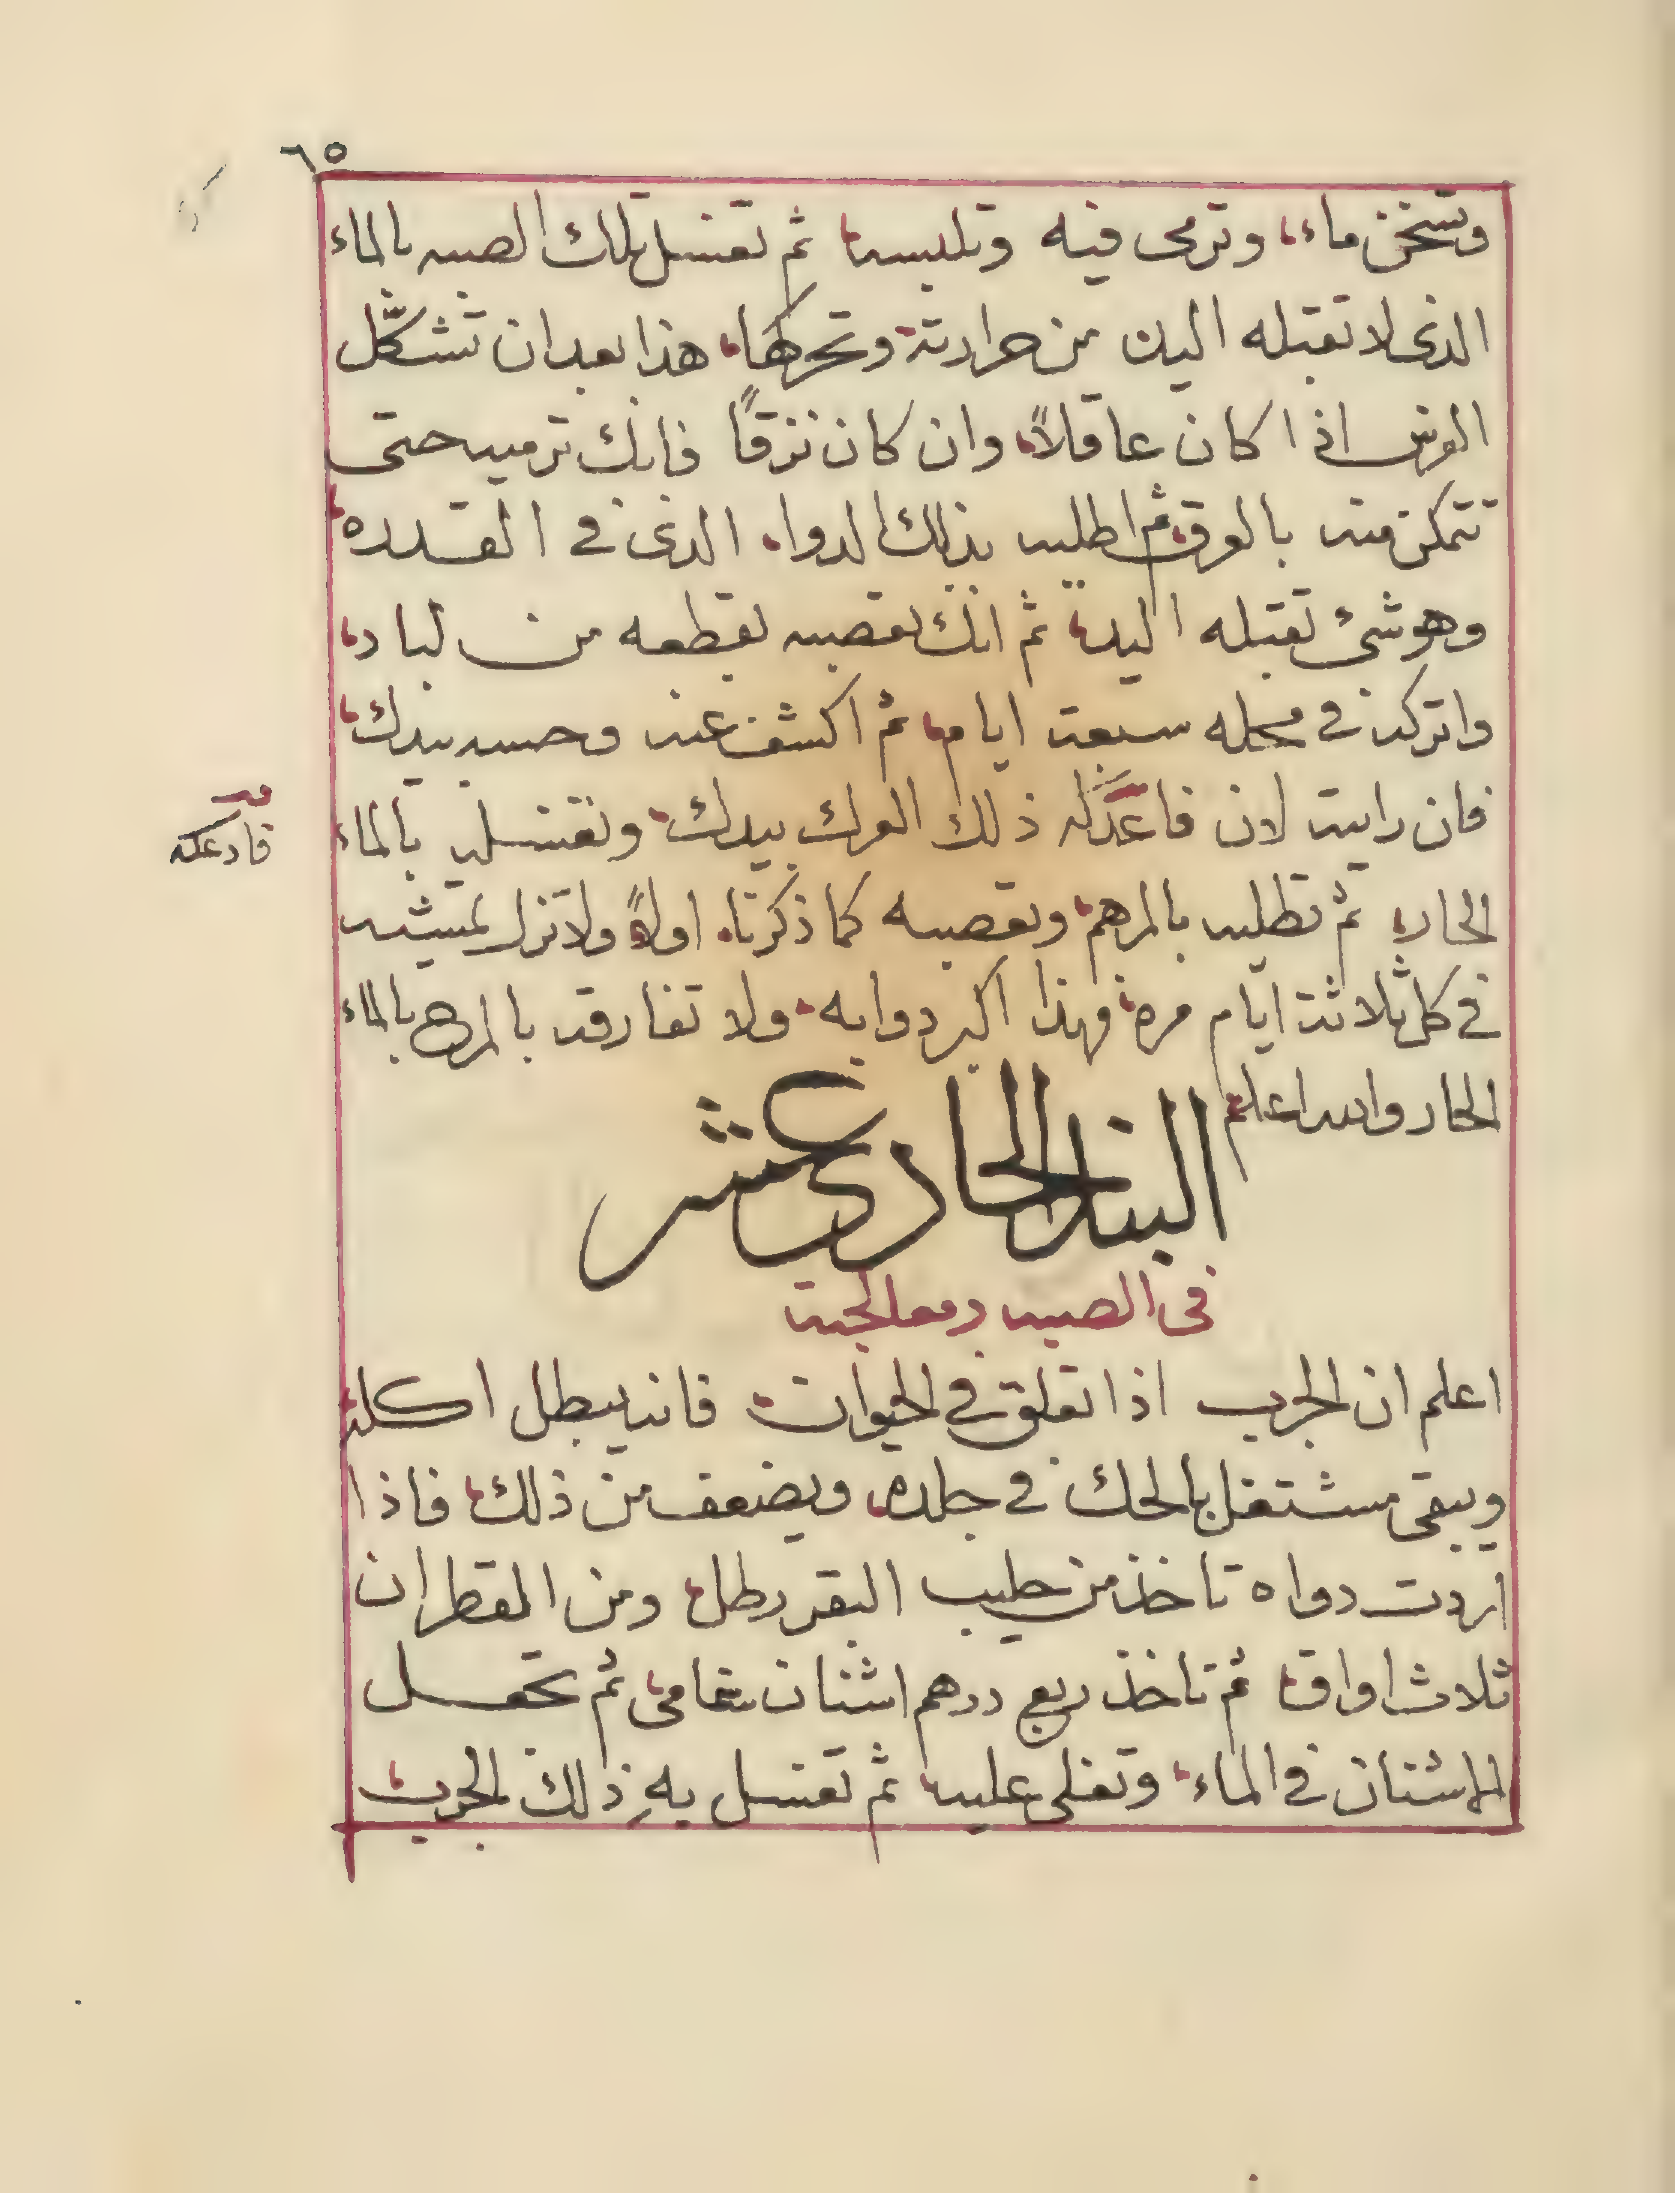 ٦٥
وتسخن ماء وترمى فيه وتلبسها ثم تغسل بتلك الصبيه بالماء
الذى لا تقبله اليد من حرارته وتحركها هذا بعد ان تشكّل
الفرس اذا كان عاقلاً وان كان نزقاً فانك ترميه حتى
تتمكن منه بالعرق ثم اطليه بذلك الدواء الذى فى القدره
وهو شئ تقبله اليد ثم انك تعصبه بقطعه من لباد
واتركه فى محله سبعة ايام ثم اكشف عنه وحسه بيدك
فان رايته لان فاعدكه ذلك العرك بيدك وتغسله بالماء
فادعكه
الحار ثم تطليه بالمرهم وتعصبه كما ذكرنا اولاً ولا تزل تمشيه
فى كل ثلاثة ايام مره فهذا اكبر دوايه ولا تفارقه بالمرهم بالماء
الحار والله اعلم
الباب الحادى عشر
فى الصيبه ومعالجته
اعلم ان الجرب اذا تعلق فى الحيوان فانه يبطل اكله
ويبقى مشتغل بالحك فى جلده ويضعف من ذلك فاذا
اردت دواه تاخذ من حليب البقر رطل ومن القطران
ثلاث اواق ثم تاخذ ربع درهم اشنان شامى ثم تجعل
الاشنان فى الماء وتغلى عليه ثم تغسل به ذلك الجرب